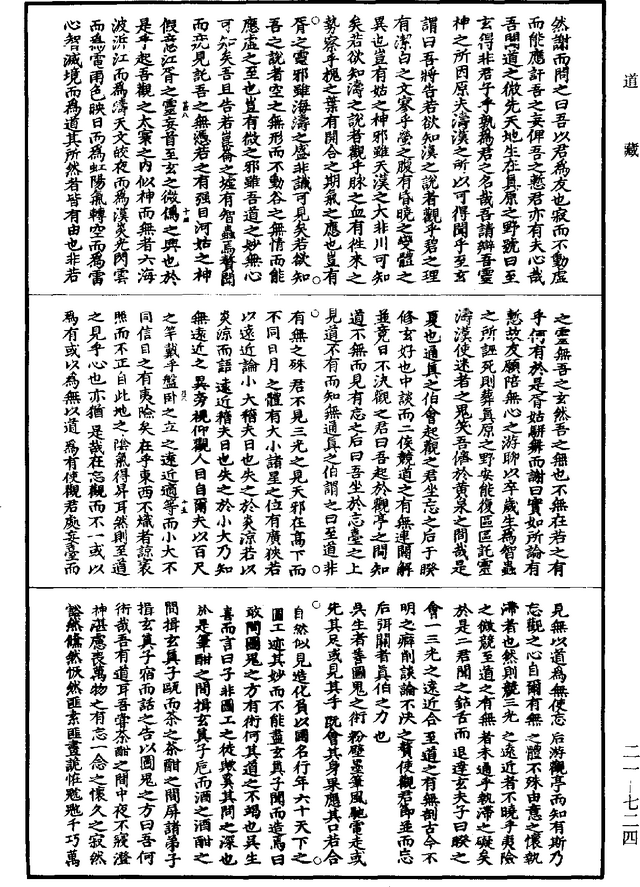 道藏
然謝而問之曰吾以君為友也寂而不動虛
而能應訐吾之妄俾吾之慙君亦有夫心哉
吾聞道之微先天地生在真原之野號曰至
玄得非君子乎孰為君之名哉吾請辯吾靈
神之所因原夫濤漢之所以可得聞乎至玄
謂曰吾將告若欲知漢之說者觀乎碧之理
有潔白之文察乎瑩之腹有昏曉之變體之
異也豈有姑之神邪雖天漢之大非川可知
矣若欲知濤之說者觀乎脉之血有往來之
勢察乎槐之葉有開合之期氣之應也豈有
胥之靈邪雖海濤之盛非識可見矣若欲知
吾之說者空之無形而不動谷之無情而能
應虛之至也豈有微之邪雖吾道之妙無心
可知矣吾且告若崑崙之墟有智蟲焉
而見託吾之無憑若之有强目河姑之神
假意江胥之靈妄首至玄之微偶之興也於
是乎起吾觀之太寥之內似神而無者六海
波沂江而為濤天文皎夜而為漢炎光閃雲
而為電雨色映日而為虹陽氣轉空而為雷
心智滅境而為道其所然者皆有由也非若
之靈無吾之玄然吾之無也不無在若之有
乎何有於是胥姑駢舞而謝曰實如所論有
慙故友願陪無心之游聊以卒歲生為智蟲
之所誣死則葬真原之野安能復區區託靈
濤漢使迷者之鬼笑吾儕於黃泉之間哉是
夏也適真之伯會起觀之君坐忘之后于睽
修玄好也中談而二侯競道之有無連關解
並竟日不決觀之君曰吾起於觀亭之間知
道不無而見有忘之后曰吾坐於忘臺之上
見道不有而知無適真之伯謂之曰至道非
有無之殊君不見三光之見天邪在高下而
不同日月之體有大小諸星之位有廣狹若
以遠近論小大稽夫日也失之於炎涼若以
炎涼而語遠近稽夫日也失之於小大乃知
無遠近之異旁視仰觀人目自爾夫以百尺
之竿戴乎盤卧之立之遠近適等而小大不
同信目之有夷險矣在乎東西不熾者諒衰
照而不正自此地之陰氣得昇耳然則至道
之見乎心也亦猶是哉在忘觀而不一或以
為有或以為無以道為有使觀君處妄臺而
見無以道為無使忘后游觀亭而知有斯乃
忘觀之心自爾有無之體不殊由意之懷執
滯者也然則競三光之遠近者不曉乎夷險
之微競至道之有無者未通乎執滯之礙矣
於是二君聞之鉆舌而退逢玄夫子曰睽之
會一三光之遠近合至道之有無割古今不
明之癖削談論不決之贅使觀君節並而忘
后弭關者真伯之力也
吳生者善圖鬼之術粉壁墨筆風馳電走或
先其足或見其手既會其身果應其口若合
自然似見造化負以國名行年六十天下之
圖工迹其妙而不能盡玄真子聞而造焉曰
敢問圖鬼之方有術何其道之不竭也吳生
喜而言曰子非圖工之徒歟奚其問之深也
於是筆酣之間揖玄真子卮而酒之酒酣之
間揖玄真子甌而茶之茶酣之間屏諸弟子
揖玄真子宿而話之告以圖鬼之方曰吾何
術哉吾有道耳吾嘗茶酣之間中夜不寢澄
神湛慮喪萬物之有忘一念之懷久之寂然
豁然儵然怳然匪素匪畫詭怪魑魅千巧萬
二一—七二四